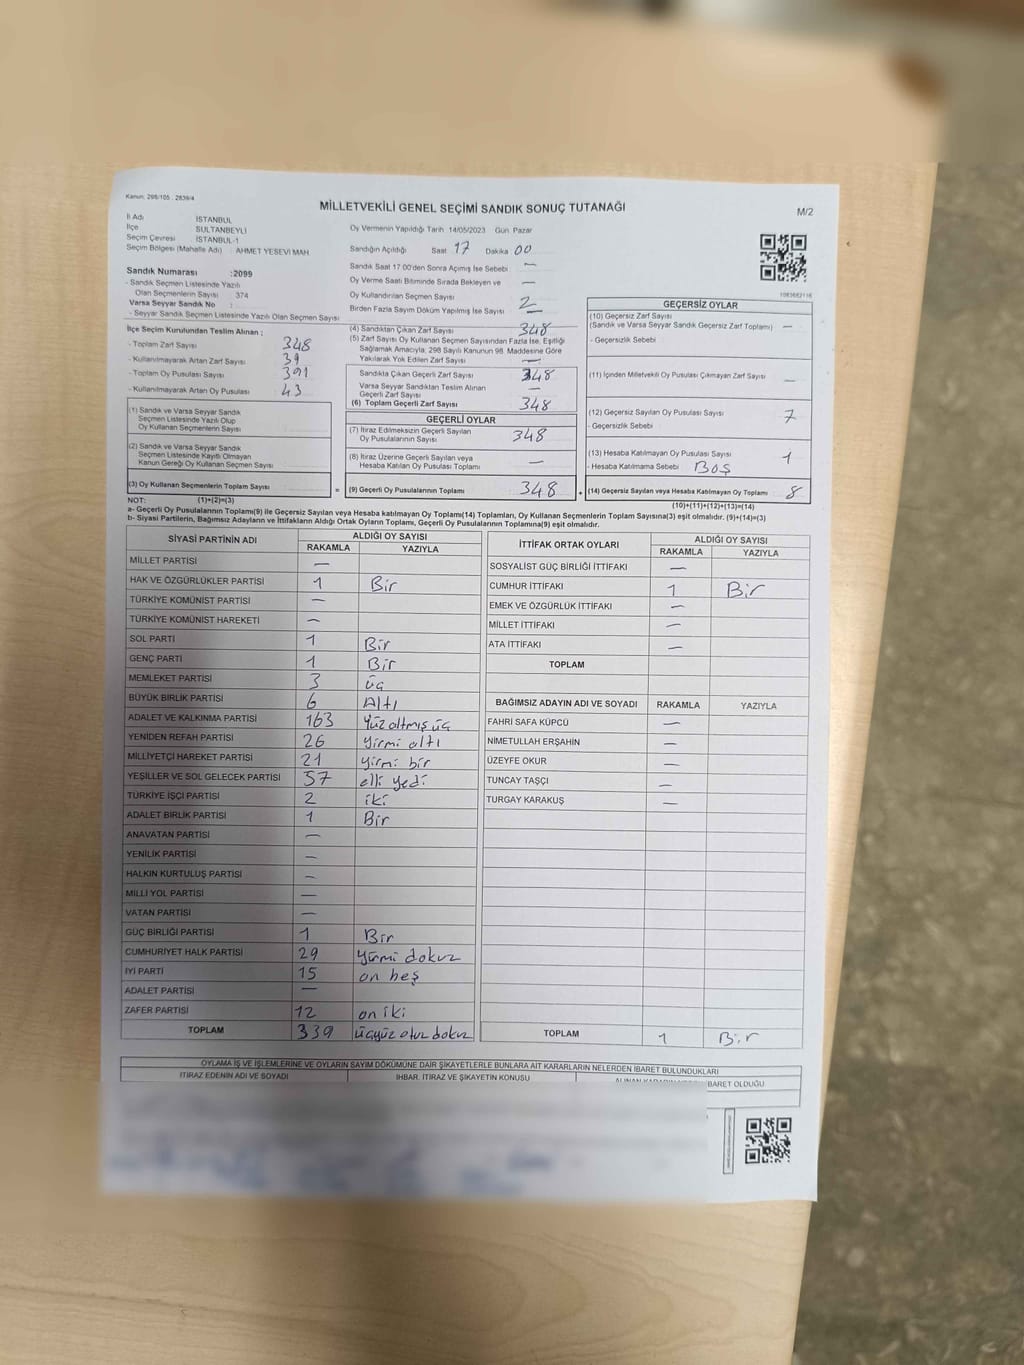 Kanun: 298/105 : 2839/4
MİLLETVEKİLİ GENEL SEÇİMİ SANDIK SONUÇ TUTANAĞI
M/2
İl Adı İSTANBUL
İlçe SULTANBEYLİ
Seçim Çevresi İSTANBUL-1
Seçim Bölgesi (Mahalle Adı) : AHMET YESEVİ MAH
Oy Vermenin Yapıldığı Tarih 14/05/2023 Gün Pazar
Sandığın Açıldığı Saat 17 Dakika 00
Sandık Saat 17 00'den Sonra Açımış İse Sebebi —
Oy Verme Saati Bitiminde Sırada Bekleyen ve —
Oy Kullandırılan Seçmen Sayısı 2
Birden Fazla Sayım Döküm Yapılmış İse Sayısı —
Sandık Numarası :2099
- Sandık Seçmen Listesinde Yazılı
Olan Seçmenlerin Sayısı 374
Varsa Seyyar Sandık No :
- Seyyar Sandık Seçmen Listesinde Yazılı Olan Seçmen Sayısı
1083682116
İlçe Seçim Kurulundan Teslim Alınan :
- Toplam Zarf Sayısı 348
- Kullanılmayarak Artan Zarf Sayısı 39
- Toplam Oy Pusulası Sayısı 391
- Kullanılmayarak Artan Oy Pusulası 43
(1) Sandık ve Varsa Seyyar Sandık
Seçmen Listesinde Yazılı Olup
Oy Kullanan Seçmenlerin Sayısı
(2) Sandık ve Varsa Seyyar Sandık
Seçmen Listesinde Kayıtlı Olmayan
Kanun Gereği Oy Kullanan Seçmen Sayısı
(3) Oy Kullanan Seçmenlerin Toplam Sayısı
(4) Sandıktan Çıkan Zarf Sayısı 348
(5) Zarf Sayısı Oy Kullanan Seçmen Sayısından Fazla İse, Eşitliği
Sağlamak Amacıyla, 298 Sayılı Kanunun 98. Maddesine Göre
Yakılarak Yok Edilen Zarf Sayısı —
Sandıkta Çıkan Geçerli Zarf Sayısı 348
Varsa Seyyar Sandıktan Teslim Alınan
Geçerli Zarf Sayısı —
(6) Toplam Geçerli Zarf Sayısı 348
GEÇERLİ OYLAR
(7) İtiraz Edilmeksizin Geçerli Sayılan
Oy Pusulalarının Sayısı 348
(8) İtiraz Üzerine Geçerli Sayılan veya
Hesaba Katılan Oy Pusulası Toplamı —
= (9) Geçerli Oy Pusulalarının Toplamı 348 +
GEÇERSİZ OYLAR
(10) Geçersiz Zarf Sayısı
(Sandık ve Varsa Seyyar Sandık Geçersiz Zarf Toplamı) —
- Geçersizlik Sebebi
(11) İçinden Milletvekili Oy Pusulası Çıkmayan Zarf Sayısı —
(12) Geçersiz Sayılan Oy Pusulası Sayısı 7
- Geçersizlik Sebebi
(13) Hesaba Katılmayan Oy Pusulası Sayısı 1
- Hesaba Katılmama Sebebi BOŞ
(14) Geçersiz Sayılan veya Hesaba Katılmayan Oy Toplamı 8
NOT: (1)+(2)=(3) (10)+(11)+(12)+(13)=(14)
a- Geçerli Oy Pusulaları Toplamı(9) ile Geçersiz Sayılan veya Hesaba Katılmayan Oy Toplamı(14) Toplamları, Oy Kullanan Seçmenlerin Toplam Sayısına(3) eşit olmalıdır. (9)+(14)=(3)
b- Siyasi Partilerin, Bağımsız Adayların ve İttifakların Aldığı Ortak Oyların Toplamı, Geçerli Oy Pusulalarının Toplamına(9) eşit olmalıdır.
SİYASİ PARTİNİN ADI ALDIĞI OY SAYISI
RAKAMLA YAZIYLA
MİLLET PARTİSİ —
HAK VE ÖZGÜRLÜKLER PARTİSİ 1 Bir
TÜRKİYE KOMÜNİST PARTİSİ —
TÜRKİYE KOMÜNİST HAREKETİ —
SOL PARTİ 1 Bir
GENÇ PARTİ 1 Bir
MEMLEKET PARTİSİ 3 üç
BÜYÜK BİRLİK PARTİSİ 6 Altı
ADALET VE KALKINMA PARTİSİ 163 Yüzaltmış üç
YENİDEN REFAH PARTİSİ 26 Yirmi altı
MİLLİYETÇİ HAREKET PARTİSİ 21 yirmi bir
YEŞİLLER VE SOL GELECEK PARTİSİ 57 elli yedi
TÜRKİYE İŞÇİ PARTİSİ 2 iki
ADALET BİRLİK PARTİSİ 1 Bir
ANAVATAN PARTİSİ —
YENİLİK PARTİSİ —
HALKIN KURTULUŞ PARTİSİ —
MİLLİ YOL PARTİSİ —
VATAN PARTİSİ —
GÜÇ BİRLİĞİ PARTİSİ 1 Bir
CUMHURİYET HALK PARTİSİ 29 yirmi dokuz
İYİ PARTİ 15 on beş
ADALET PARTİSİ —
ZAFER PARTİSİ 12 on iki
TOPLAM 339 üçyüz otuz dokuz
İTTİFAK ORTAK OYLARI ALDIĞI OY SAYISI
RAKAMLA YAZIYLA
SOSYALİST GÜÇ BİRLİĞİ İTTİFAKI —
CUMHUR İTTİFAKI 1 Bir
EMEK VE ÖZGÜRLÜK İTTİFAKI —
MİLLET İTTİFAKI —
ATA İTTİFAKI —
TOPLAM
BAĞIMSIZ ADAYIN ADI VE SOYADI RAKAMLA YAZIYLA
FAHRİ SAFA KÜPCÜ —
NİMETULLAH ERŞAHİN —
ÜZEYFE OKUR —
TUNCAY TAŞÇI —
TURGAY KARAKUŞ —
TOPLAM 1 Bir
OYLAMA İŞ VE İŞLEMLERİNE VE OYLARIN SAYIM DÖKÜMÜNE DAİR ŞİKAYETLERLE BUNLARA AİT KARARLARIN NELERDEN İBARET BULUNDUKLARI
İTİRAZ EDENİN ADI VE SOYADI İHBAR, İTİRAZ VE ŞİKAYETİN KONUSU BARET OLDUĞU